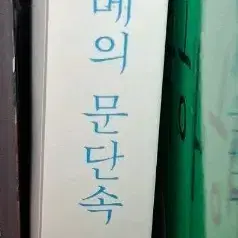 메의 문단속